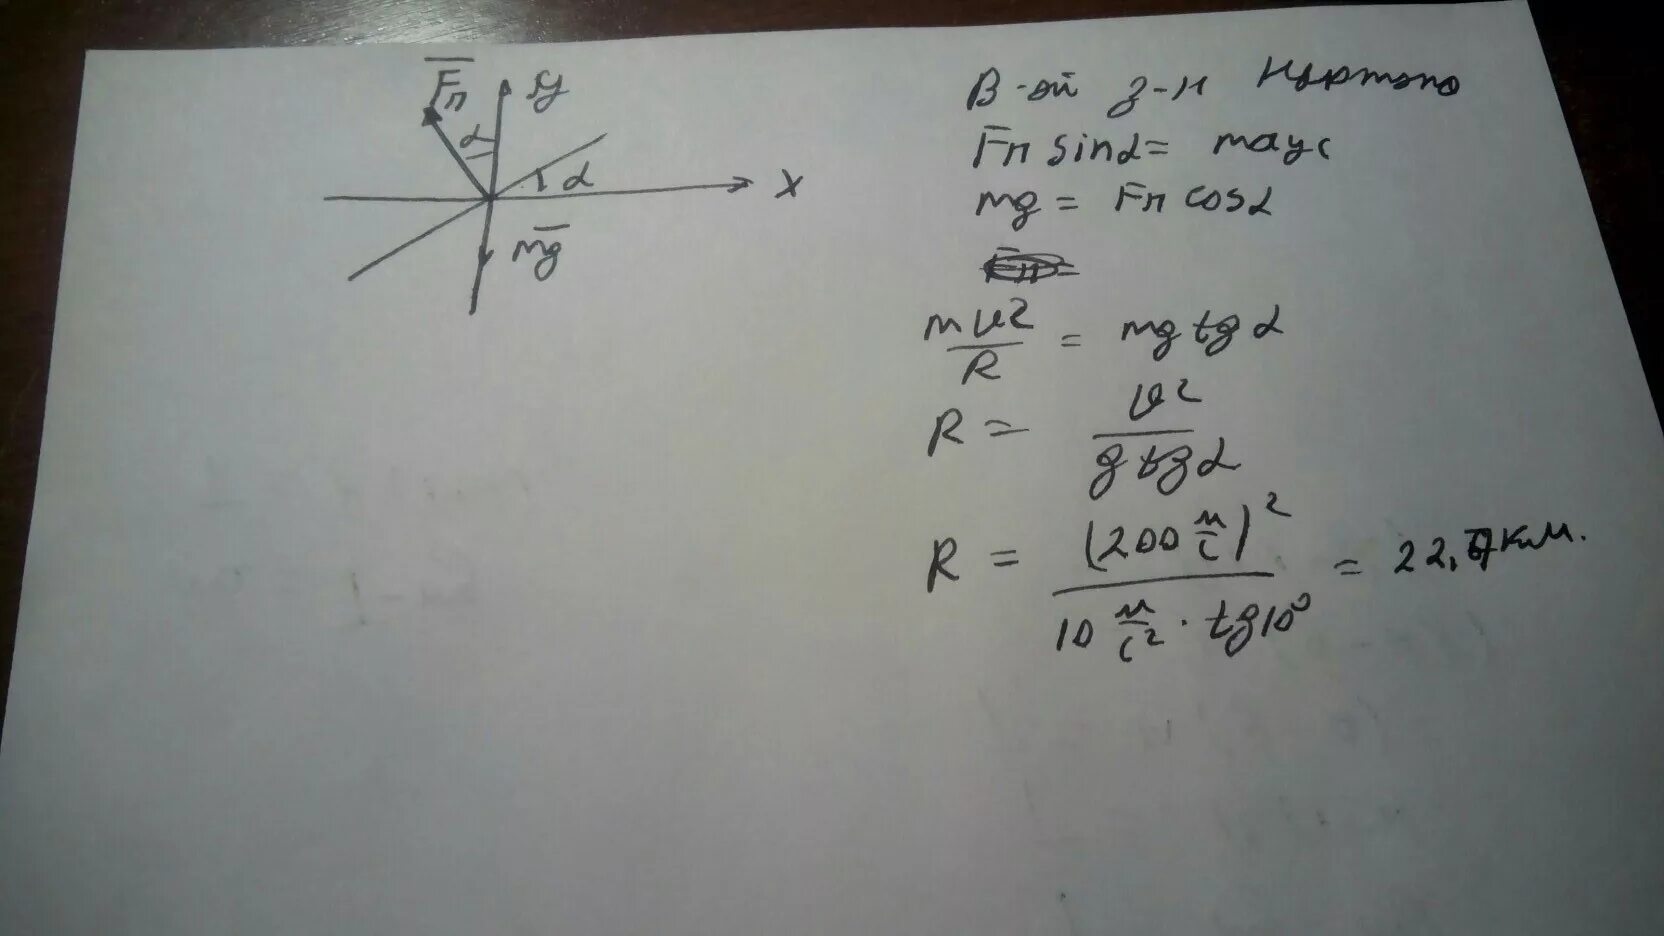 Fп y
α
α x
mg
В-ой з-н Ньютона
Fп sinα = maцс
mg = Fп cosα
Fп =
mv²/R = mg tg α
R = v²/(g tg α)
R = (200 м/с)²/(10 м/с² · tg10⁰) = 22,7 км.